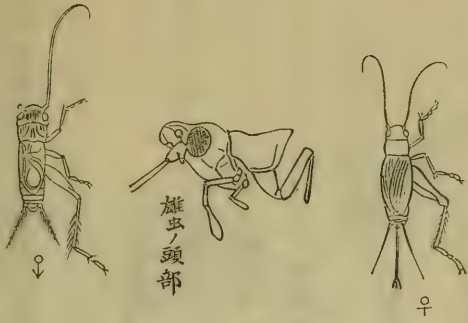 雄虫ノ頭部